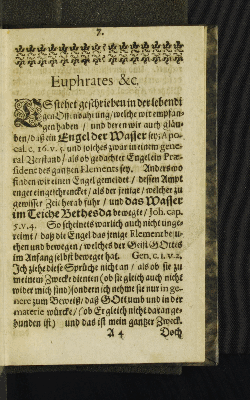 7.
Euphrates &c.
ES stehet geschrieben in der lebendi
gen Offenbahrung/ welche wir empfan-
gen haben / und deren wir auch gläu-
ben/ daß ein Engel der Wasser sey/ Apo-
cal. c. 16. v. 5. und solches zwar in einem gene-
ral Verstand/ als ob gedachter Engel ein Præ-
sident des gantzen Elements sey. Anderswo
finden wir einen Engel gemeldet / dessen Ampt
enger eingeschrencket/ als der jenige/ welcher zu
gewisser Zeit herab fuhr / und das Wasser
im Teiche Bethesda bewegte/ Joh. cap.
5. v. 4. So scheinet es warlich auch nicht unge-
reimt/ daß die Engel das jenige Element besu-
chen und bewegen/ welches der Geist GOttes
im Anfang selbst beweget hat. Gen. c. 1. v. 2.
Ich ziehe diese Sprüche nicht an / als ob sie zu
meinem Zweck dienten (ob sie gleich auch nicht
wider mich sind) sondern ich nehme sie nur in ge-
nere zum Beweiß/ daß GOtt umb und in der
materie würcke/ (ob Er gleich nicht daran ge-
bunden ist) und das ist mein gantzer Zweck.
A 4 Doch